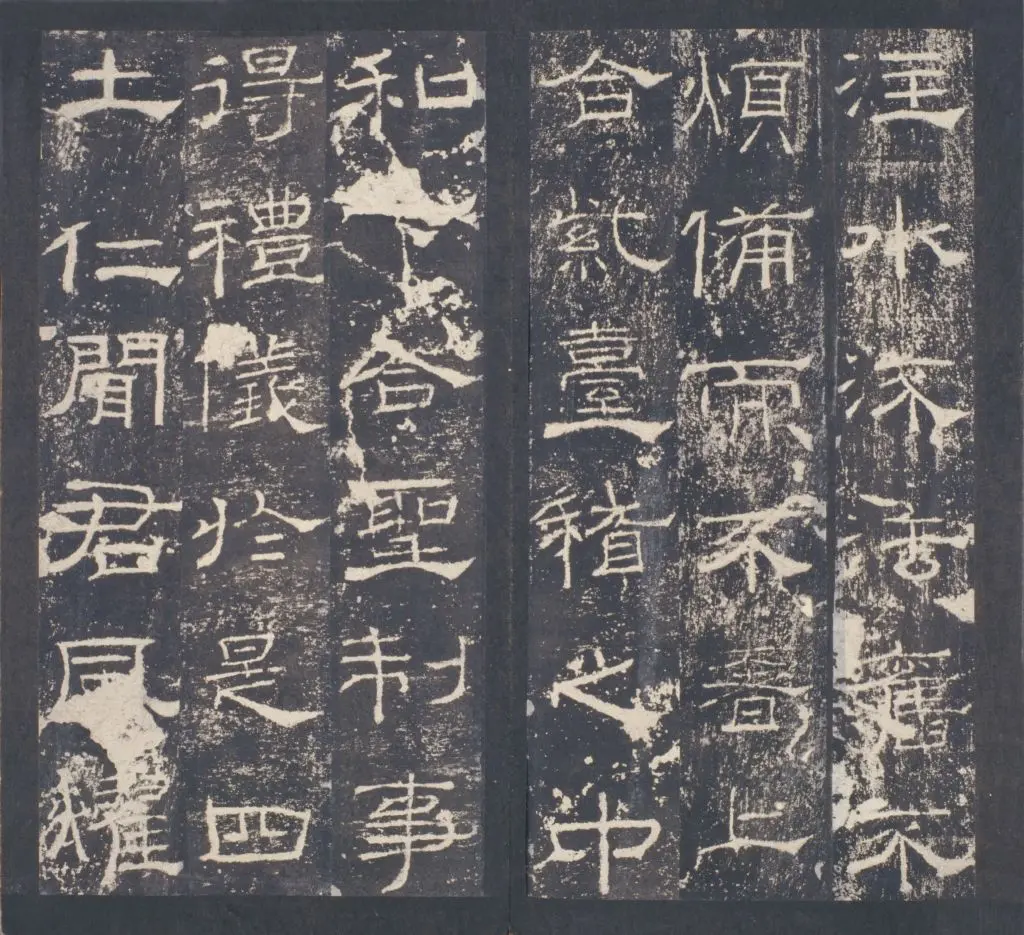 注水流法舊不
煩備而不奢上
合紫臺稽之中
和下合聖制事
得禮儀於是四
士仁聞君風燿